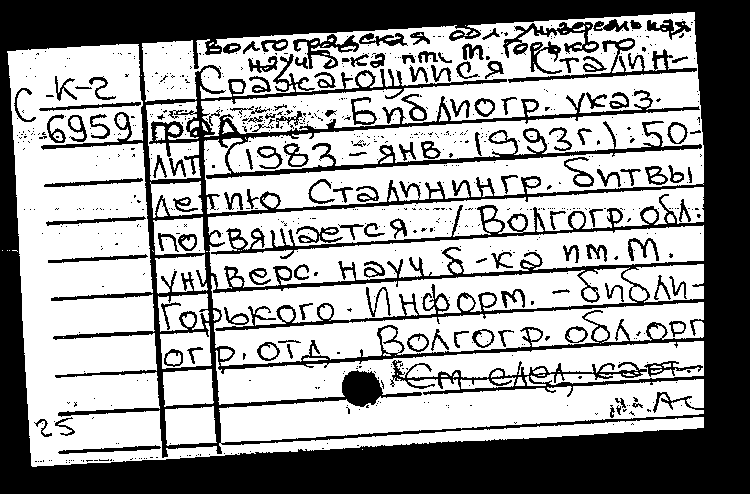 Волгоградская обл. универсальная
науч б-ка им. М. Горького.
С-К-2 Сражающийся Сталин-
6959 град : Библиогр. указ.
лит. (1983 – янв. 1993г.) : 50-
летию Сталинингр. битвы
посвящается... / Волгогр. обл.
универс. науч. б-ка им. М.
Горького. Информ. - библи-
огр. отд., Волгогр. обл. орг
См. след. карт.
25